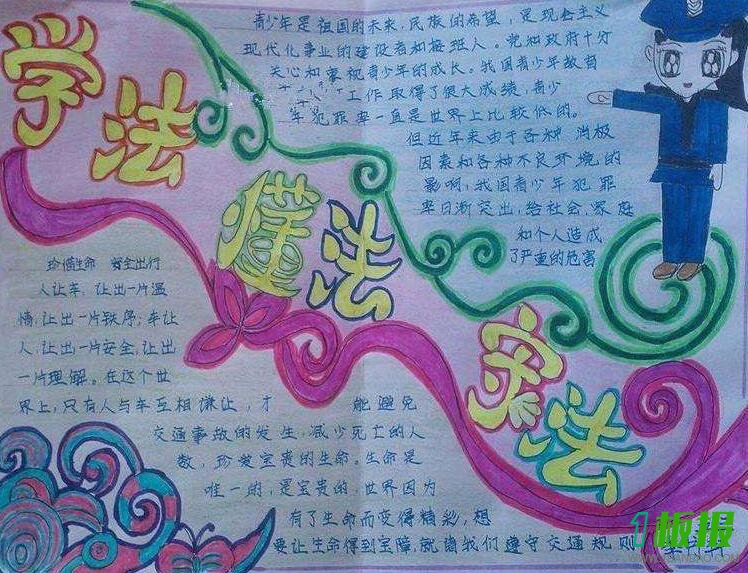 学法
懂法
守法
青少年是祖国的未来，民族的希望，是现会主义
现代化事业的建设者和接班人。党和政府十分
关心和重视青少年的成长。我国青少年教育
工作取得了很大成绩，青少
年犯罪率一直是世界上比较低的。
但近年来由于各种 消极
因素和各种不良环境的
影响，我国青少年犯罪
率日渐突出，给社会，家庭
和个人造成
了严重的危害
珍惜生命 安全出行
人让车，让出一片温
情，让出一片秩序；车让
人，让出一片安全，让出
一片理解。在这个世
界上，只有人与车互相谦让，才 能避免
交通事故的发生，减少死亡的人
数，珍爱宝贵的生命。生命是
唯一的，是宝贵的，世界因为
有了生命而变得精彩，想
要让生命得到宝障，就请我们遵守交通规则
板报